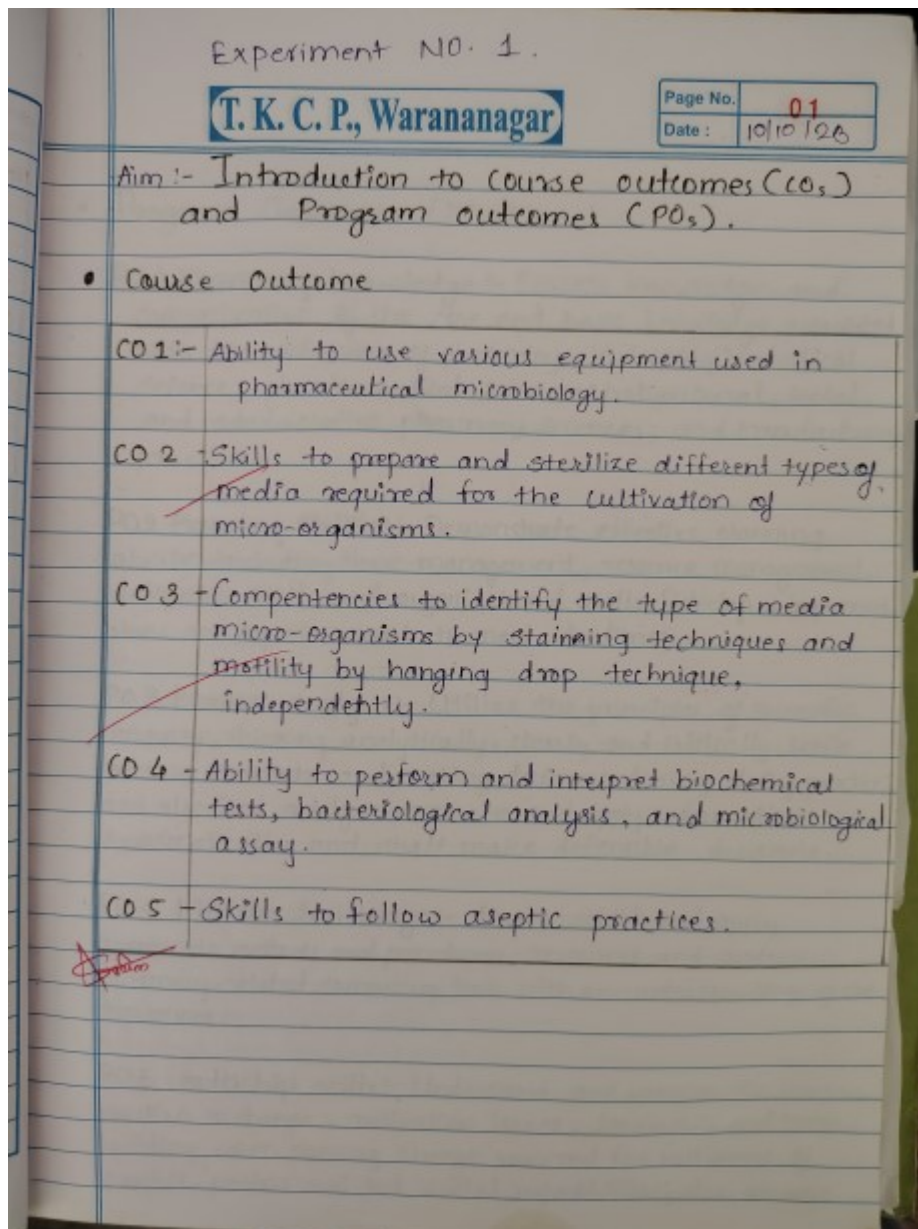 Experiment NO. 1.
T. K. C. P., Warananagar
Page No. 01
Date : 10/10/26
Aim :- Introduction to Course outcomes (COs)
and Program outcomes (POs).
• Course Outcome
CO 1 :- Ability to use various equipment used in
pharmaceutical microbiology.
CO 2 - Skills to prepare and sterilize different types of
media required for the cultivation of
micro-organisms.
CO 3 - Compentencies to identify the type of media
micro-organisms by stainning techniques and
motility by hanging drop technique,
independently.
CO 4 - Ability to perform and interpret biochemical
tests, bacteriological analysis, and microbiological
assay.
CO 5 - Skills to follow aseptic practices.